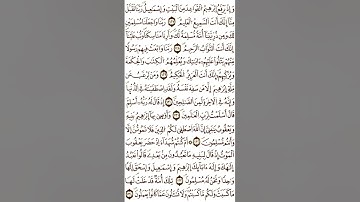 وَإِذْ يَرْفَعُ إِبْرَٰهِيمُ الْقَوَاعِدَ مِنَ الْبَيْتِ وَإِسْمَٰعِيلُ رَبَّنَا تَقَبَّلْ
مِنَّا إِنَّكَ أَنتَ السَّمِيعُ الْعَلِيمُ رَبَّنَا وَاجْعَلْنَا مُسْلِمَيْنِ
لَكَ وَمِن ذُرِّيَّتِنَا أُمَّةً مُّسْلِمَةً لَّكَ وَأَرِنَا مَنَاسِكَنَا وَتُبْ عَلَيْنَا
إِنَّكَ أَنتَ التَّوَّابُ الرَّحِيمُ رَبَّنَا وَابْعَثْ فِيهِمْ رَسُولًا
مِّنْهُمْ يَتْلُوا عَلَيْهِمْ ءَايَٰتِكَ وَيُعَلِّمُهُمُ الْكِتَٰبَ وَالْحِكْمَةَ
وَيُزَكِّيهِمْ إِنَّكَ أَنتَ الْعَزِيزُ الْحَكِيمُ وَمَن يَرْغَبُ عَن
مِّلَّةِ إِبْرَٰهِيمَ إِلَّا مَن سَفِهَ نَفْسَهُ وَلَقَدِ اصْطَفَيْنَٰهُ فِي الدُّنْيَا
وَإِنَّهُ فِي الْأَخِرَةِ لَمِنَ الصَّٰلِحِينَ إِذْ قَالَ لَهُ رَبُّهُ أَسْلِمْ
قَالَ أَسْلَمْتُ لِرَبِّ الْعَٰلَمِينَ وَأَوْصَىٰ بِهَا إِبْرَٰهِيمُ بَنِيهِ
وَيَعْقُوبُ يَٰبَنِيَّ إِنَّ اللَّهَ اصْطَفَىٰ لَكُمُ الدِّينَ فَلَا تَمُوتُنَّ إِلَّا
وَأَنتُم مُّسْلِمُونَ أَمْ كُنتُمْ شُهَدَاءَ إِذْ حَضَرَ يَعْقُوبَ
الْمَوْتُ إِذْ قَالَ لِبَنِيهِ مَا تَعْبُدُونَ مِن بَعْدِي قَالُوا نَعْبُدُ
إِلَٰهَكَ وَإِلَٰهَ ءَابَائِكَ إِبْرَٰهِيمَ وَإِسْمَٰعِيلَ وَإِسْحَٰقَ إِلَٰهًا
وَٰحِدًا وَنَحْنُ لَهُ مُسْلِمُونَ تِلْكَ أُمَّةٌ قَدْ خَلَتْ لَهَا
مَا كَسَبَتْ وَلَكُم مَّا كَسَبْتُمْ وَلَا تُسْـَٔلُونَ عَمَّا كَانُوا يَعْمَلُونَ